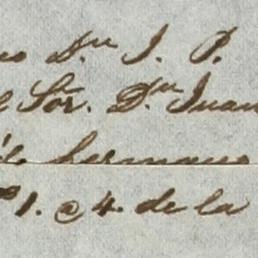 Dn. J. P.
Sor. Dn. Juan
hermano
1. @ 4. de la